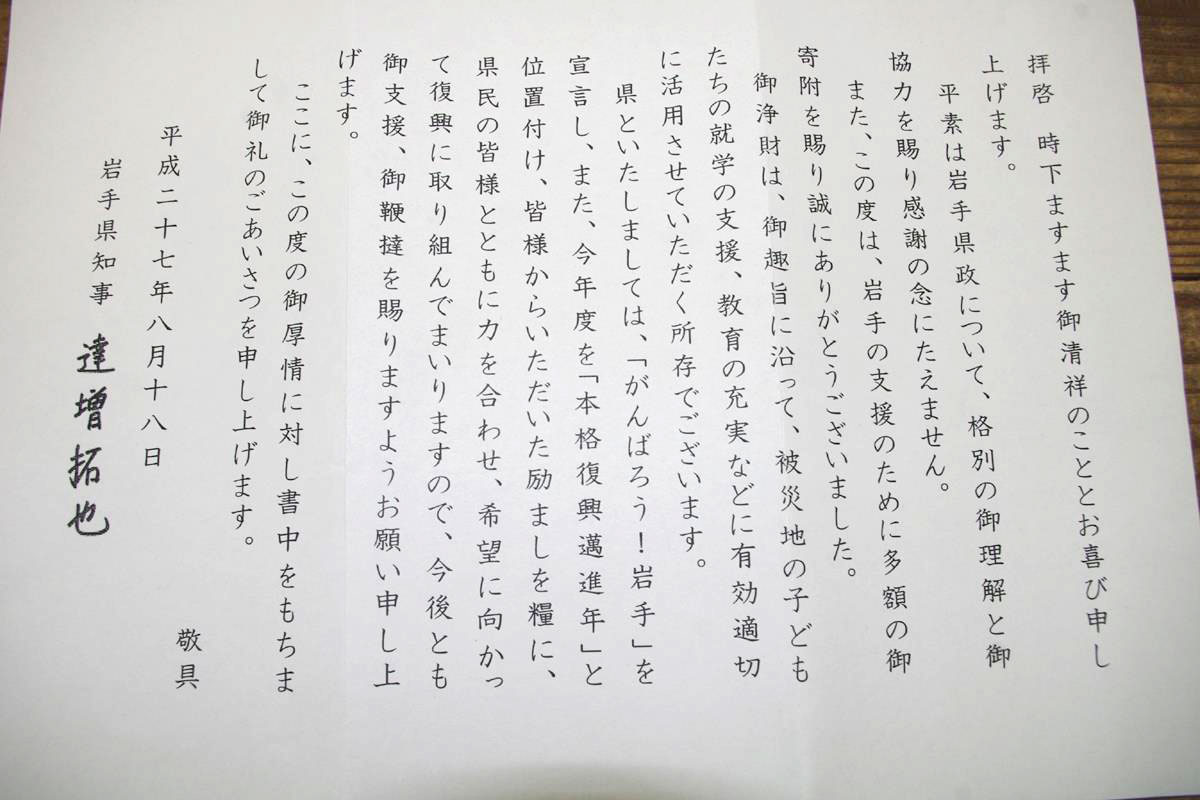 拝啓　時下ますます御清祥のこととお喜び申し
上げます。
平素は岩手県政について、格別の御理解と御
協力を賜り感謝の念にたえません。
また、この度は、岩手の支援のために多額の御
寄附を賜り誠にありがとうございました。
御浄財は、御趣旨に沿って、被災地の子ども
たちの就学の支援、教育の充実などに有効適切
に活用させていただく所存でございます。
県といたしましては、「がんばろう！岩手」を
宣言し、また、今年度を「本格復興邁進年」と
位置付け、皆様からいただいた励ましを糧に、
県民の皆様とともに力を合わせ、希望に向かっ
て復興に取り組んでまいりますので、今後とも
御支援、御鞭撻を賜りますようお願い申し上
げます。
ここに、この度の御厚情に対し書中をもちま
して御礼のごあいさつを申し上げます。
敬具
平成二十七年八月十八日
岩手県知事　達増拓也